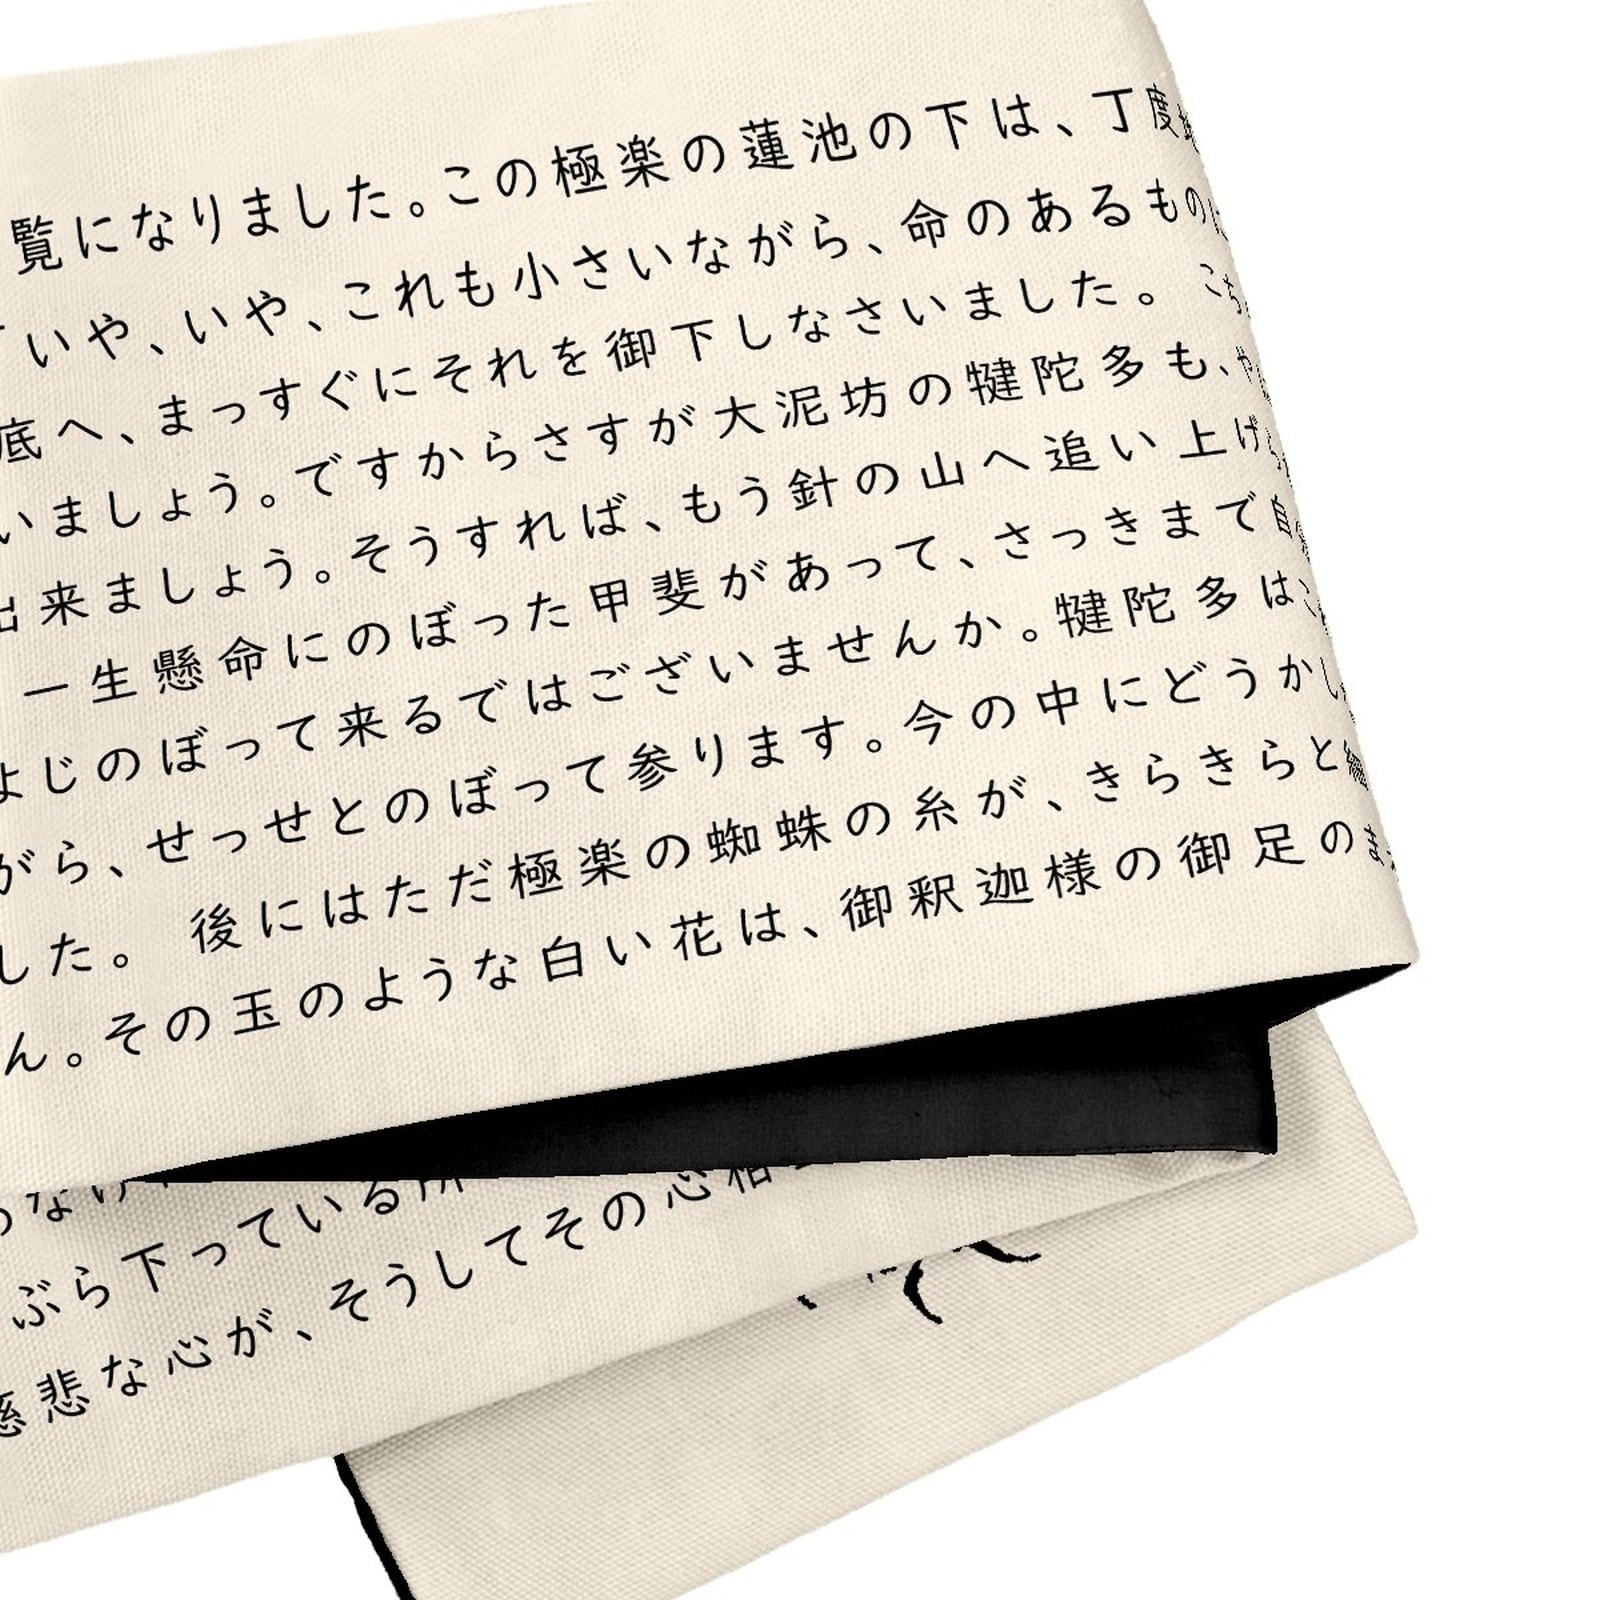 覧になりました。この極楽の蓮池の下は、丁度地
いや、いや、これも小さいながら、命のあるものに
底へ、まっすぐにそれを御下しなさいました。 こち
いましょう。ですからさすが大泥坊の犍陀多も、や
出来ましょう。そうすれば、もう針の山へ追い上げら
一生懸命にのぼった甲斐があって、さっきまで自
よじのぼって来るではございませんか。犍陀多はこ
がら、せっせとのぼって参ります。今の中にどうかし
した。 後にはただ極楽の蜘蛛の糸が、きらきらと細
ん。その玉のような白い花は、御釈迦様の御足のま
なけ
ぶら下っている所
慈悲な心が、そうしてその心相